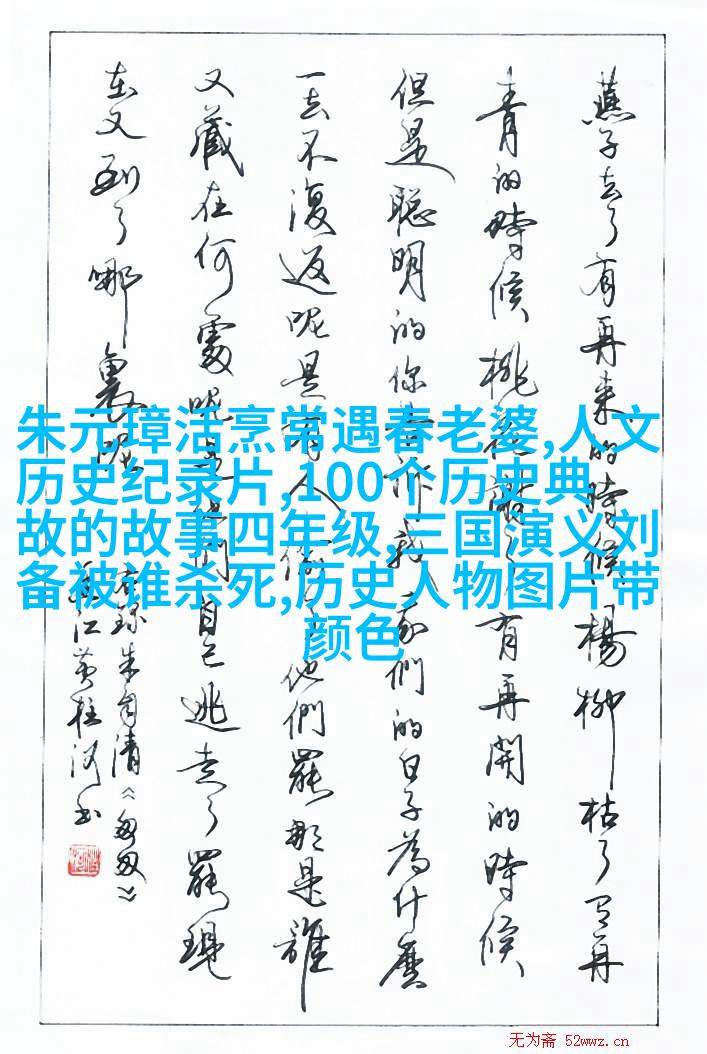 朱元璋活烹常遇春老婆,人文
历史纪录片,100个历史典
故的故事四年级,三国演义刘
备被谁杀死,历史人物图片带
颜色
燕子去了有再来的時候楊柳枯了有再
青的時候桃花謝了有再開的時候
但是聰明的你告訴我我們的日子為什麼
一去不復返呢是有人偷了他們罷那是誰
又藏在何處呢是他們自己逃走了罷現
在又到了哪裏呢
朱自清《匆匆》
江黄桂河书
无为斋 52wwz.cn